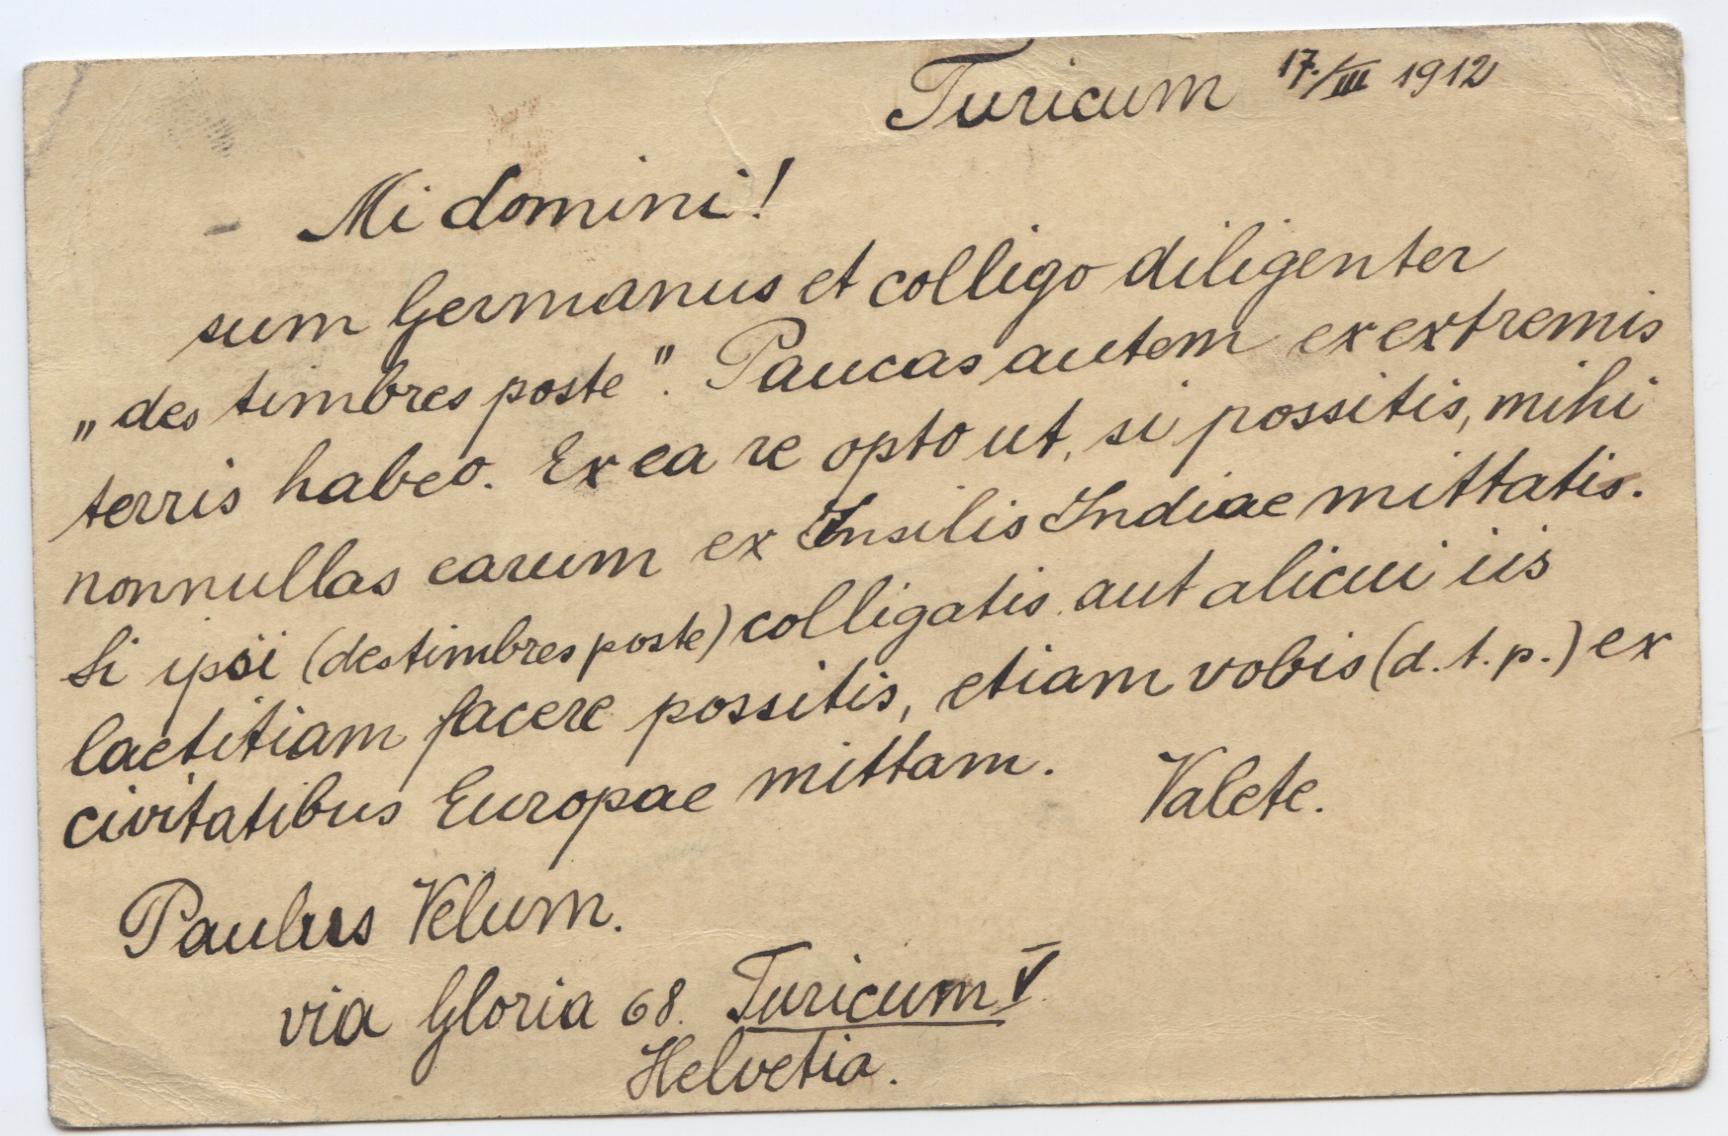 Turicum 17./III 1912
Mi domini!
sum Germanus et colligo diligenter
„des timbres poste". Paucas autem ex extremis
terris habeo. Ex ea re opto ut, si possitis, mihi
nonnullas earum ex Insilis Indiae mittatis.
Si ipsi (des timbres poste) colligatis aut alicui iis
laetitiam facere possitis, etiam vobis (d. t. p.) ex
civitatibus Europae mittam. Valete.
Paulus Velum.
via Gloria 68. Turicum V.
Helvetia.